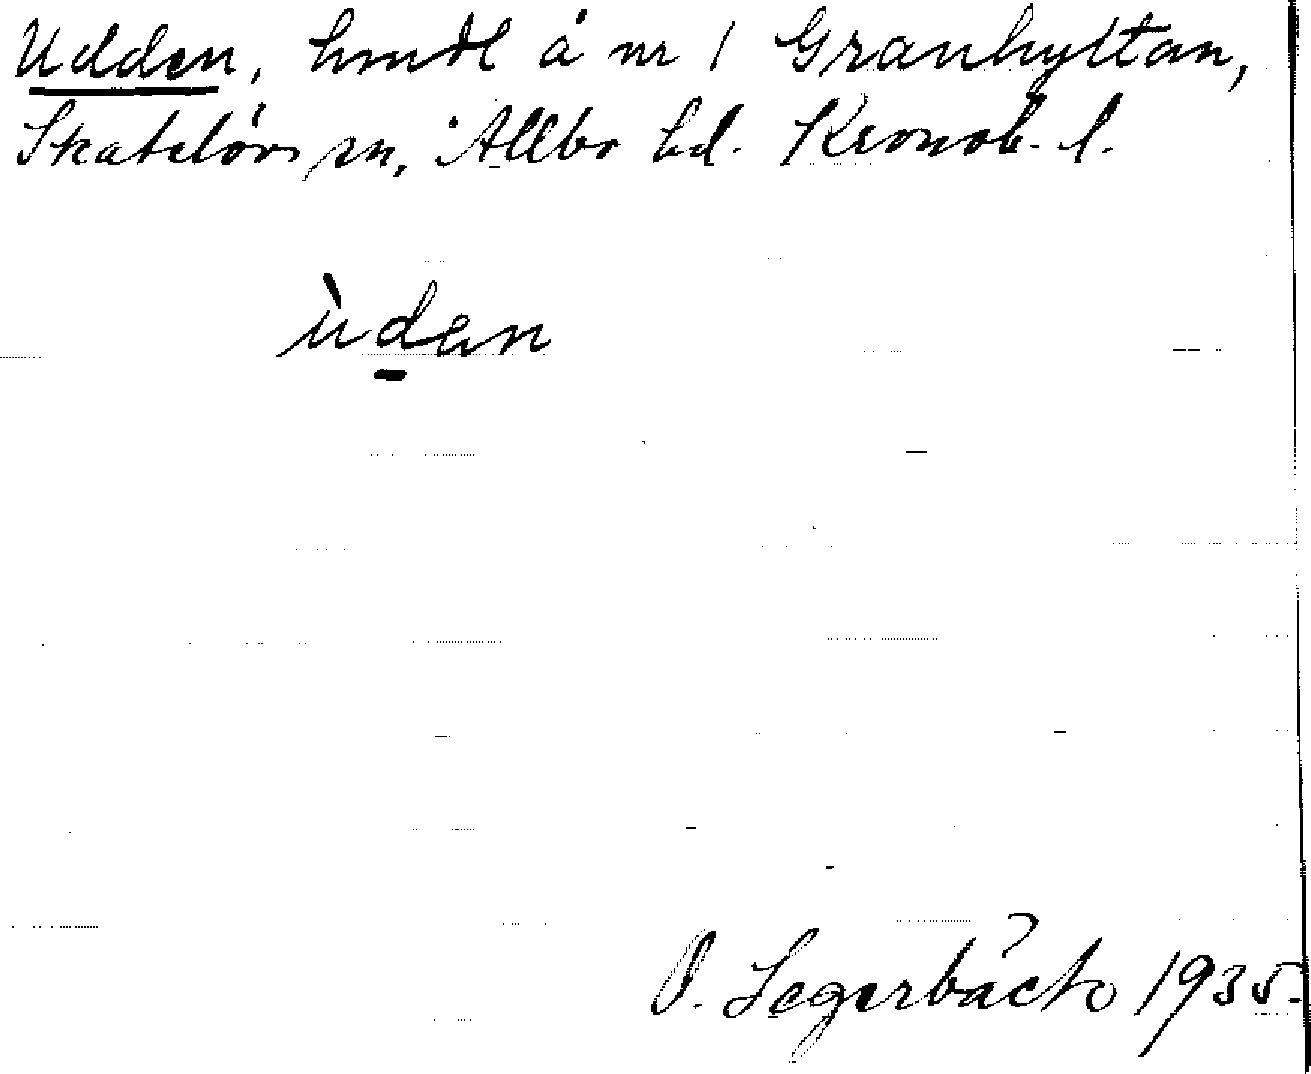 Udden, hmdl å nr 1 Granhyltan,
Skatelövs sn, Allbo hd. Kronob. l.
ùdan
O. Segerbäck 1935.